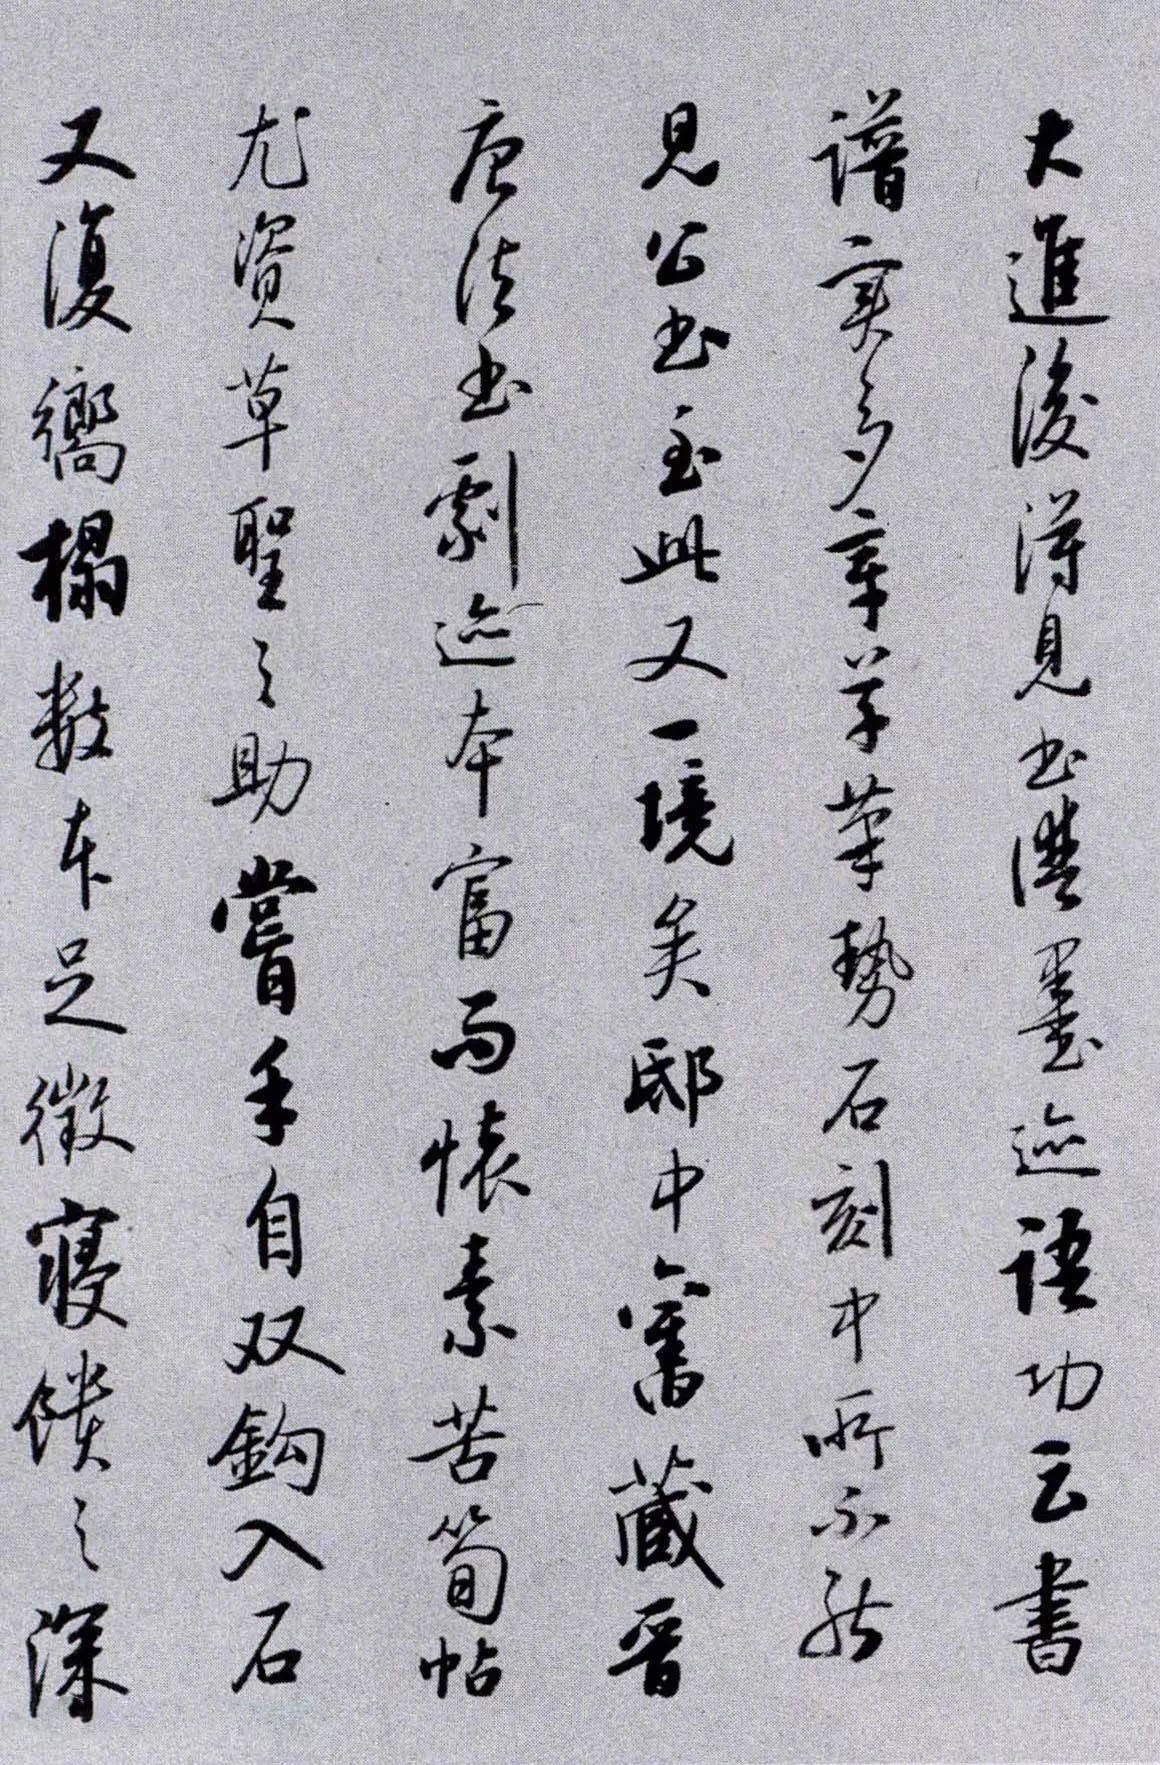 大進後得見書譜墨迹語功云書
譜实多章草筆勢石刻中所不能
見公书至此又一境矣邸中舊藏晋
唐法书劇迹本富而懐素苦筍帖
尤資草聖之助嘗手自双鈎入石
又復嚮榻数本足徵寝饋之深